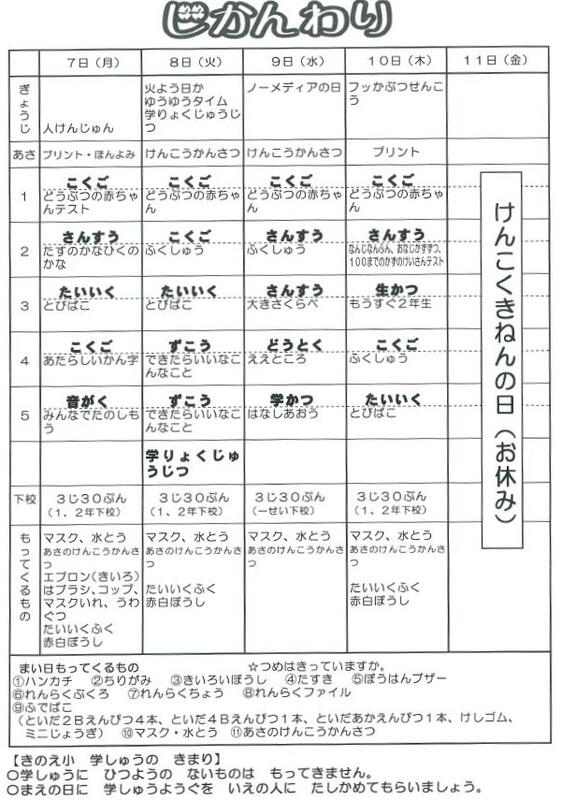 じかんわり
7日(月) 8日(火) 9日(水) 10日(木) 11日(金)
ぎょうじ
人けんじゅん
火よう日か
ゆうゆうタイム
学りょくじゅうじ
つ
ノーメディアの日
フッかぶつせんこ
う
あさ プリント・ほんよみ けんこうかんさつ けんこうかんさつ プリント
1 こくご こくご こくご こくご
どうぶつの赤ちゃ どうぶつの赤ちゃ どうぶつの赤ちゃ どうぶつの赤ちゃ
んテスト ん ん ん
2 さんすう こくご さんすう さんすう
たすのかなひくの ふくしゅう ふくしゅう なんじなんぷん、おなじかずずつ、
かな 100までのかずのけいさんテスト
3 たいいく たいいく さんすう 生かつ
とびばこ とびばこ 大きさくらべ もうすぐ2年生
4 こくご ずこう どうとく こくご
あたらしいかん字 できたらいいなこ ええところ ふくしゅう
んなこと
5 音がく ずこう 学かつ たいいく
みんなでたのしも できたらいいなこ はなしあおう とびばこ
う んなこと
学りょくじゅ
うじつ
けんこくきねんの日(お休み)
下校 3じ30ぷん 3じ30ぷん 3じ30ぷん 3じ30ぷん
(1、2年下校) (1、2年下校) (一せい下校) (1、2年下校)
もってくるもの
マスク、水とう
あさのけんこうかんさ
つ
エプロン(きいろ)
はブラシ、コップ、
マスクいれ、うわ
ぐつ
たいいくふく
赤白ぼうし
マスク、水とう
あさのけんこうかんさ
つ
たいいくふく
赤白ぼうし
マスク、水とう
あさのけんこうかんさ
つ
マスク、水とう
あさのけんこうかんさ
つ
たいいくふく
赤白ぼうし
まい日もってくるもの ☆つめはきっていますか。
①ハンカチ ②ちりがみ ③きいろいぼうし ④たすき ⑤ぼうはんブザー
⑥れんらくぶくろ ⑦れんらくちょう ⑧れんらくファイル
⑨ふでばこ
(といだ2Bえんぴつ4本、といだ4Bえんぴつ1本、といだあかえんぴつ1本、けしゴム、
ミニじょうぎ) ⑩マスク・水とう ⑪あさのけんこうかんさつ
【きのえ小 学しゅうの きまり】
○学しゅうに ひつようの ないものは もってきません。
○まえの日に 学しゅうようぐを いえの人に たしかめてもらいましょう。